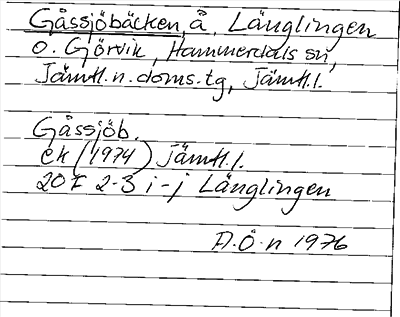 Gåssjöbäcken, å, Länglingen
o. Görvik, Hammerdals sn,
Jämtl. n. doms. tg, Jämtl. l.
Gåssjöb.
ek (1974) Jämtl. l.
20F 2-3 i-j Länglingen
A.Ö-n 1976